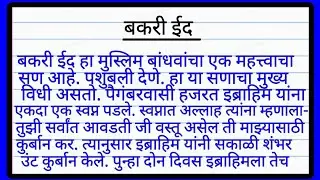 बकरी ईद
बकरी ईद हा मुस्लिम बांधवांचा एक महत्त्वाचा
सण आहे. पशुबली देणे. हा या सणाचा मुख्य
विधी असतो. पैगंबरवासी हजरत इब्राहिम यांना
एकदा एक स्वप्न पडले. स्वप्नात अल्लाह त्यांना म्हणाला-
तुझी सर्वांत आवडती जी वस्तू असेल ती माझ्यासाठी
कुर्बान कर. त्यानुसार इब्राहिम यांनी सकाळी शंभर
उंट कुर्बान केले. पुन्हा दोन दिवस इब्राहिमला तेच